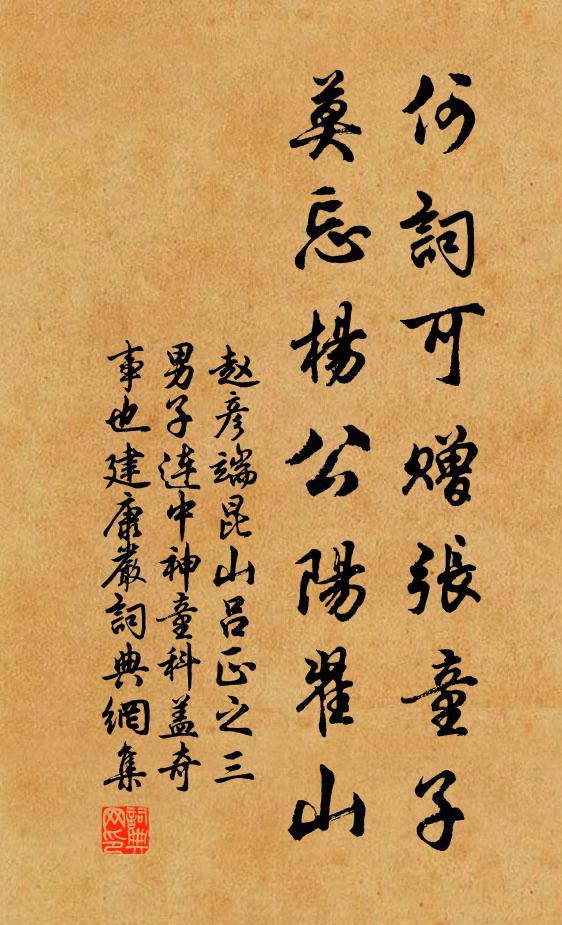 何詞可贈張童子
莫忘楊公陽翟山
赵彦端昆山吕正之三
男子連中神童科蓋奇
事也建康嚴詞典網集
詞典
网印